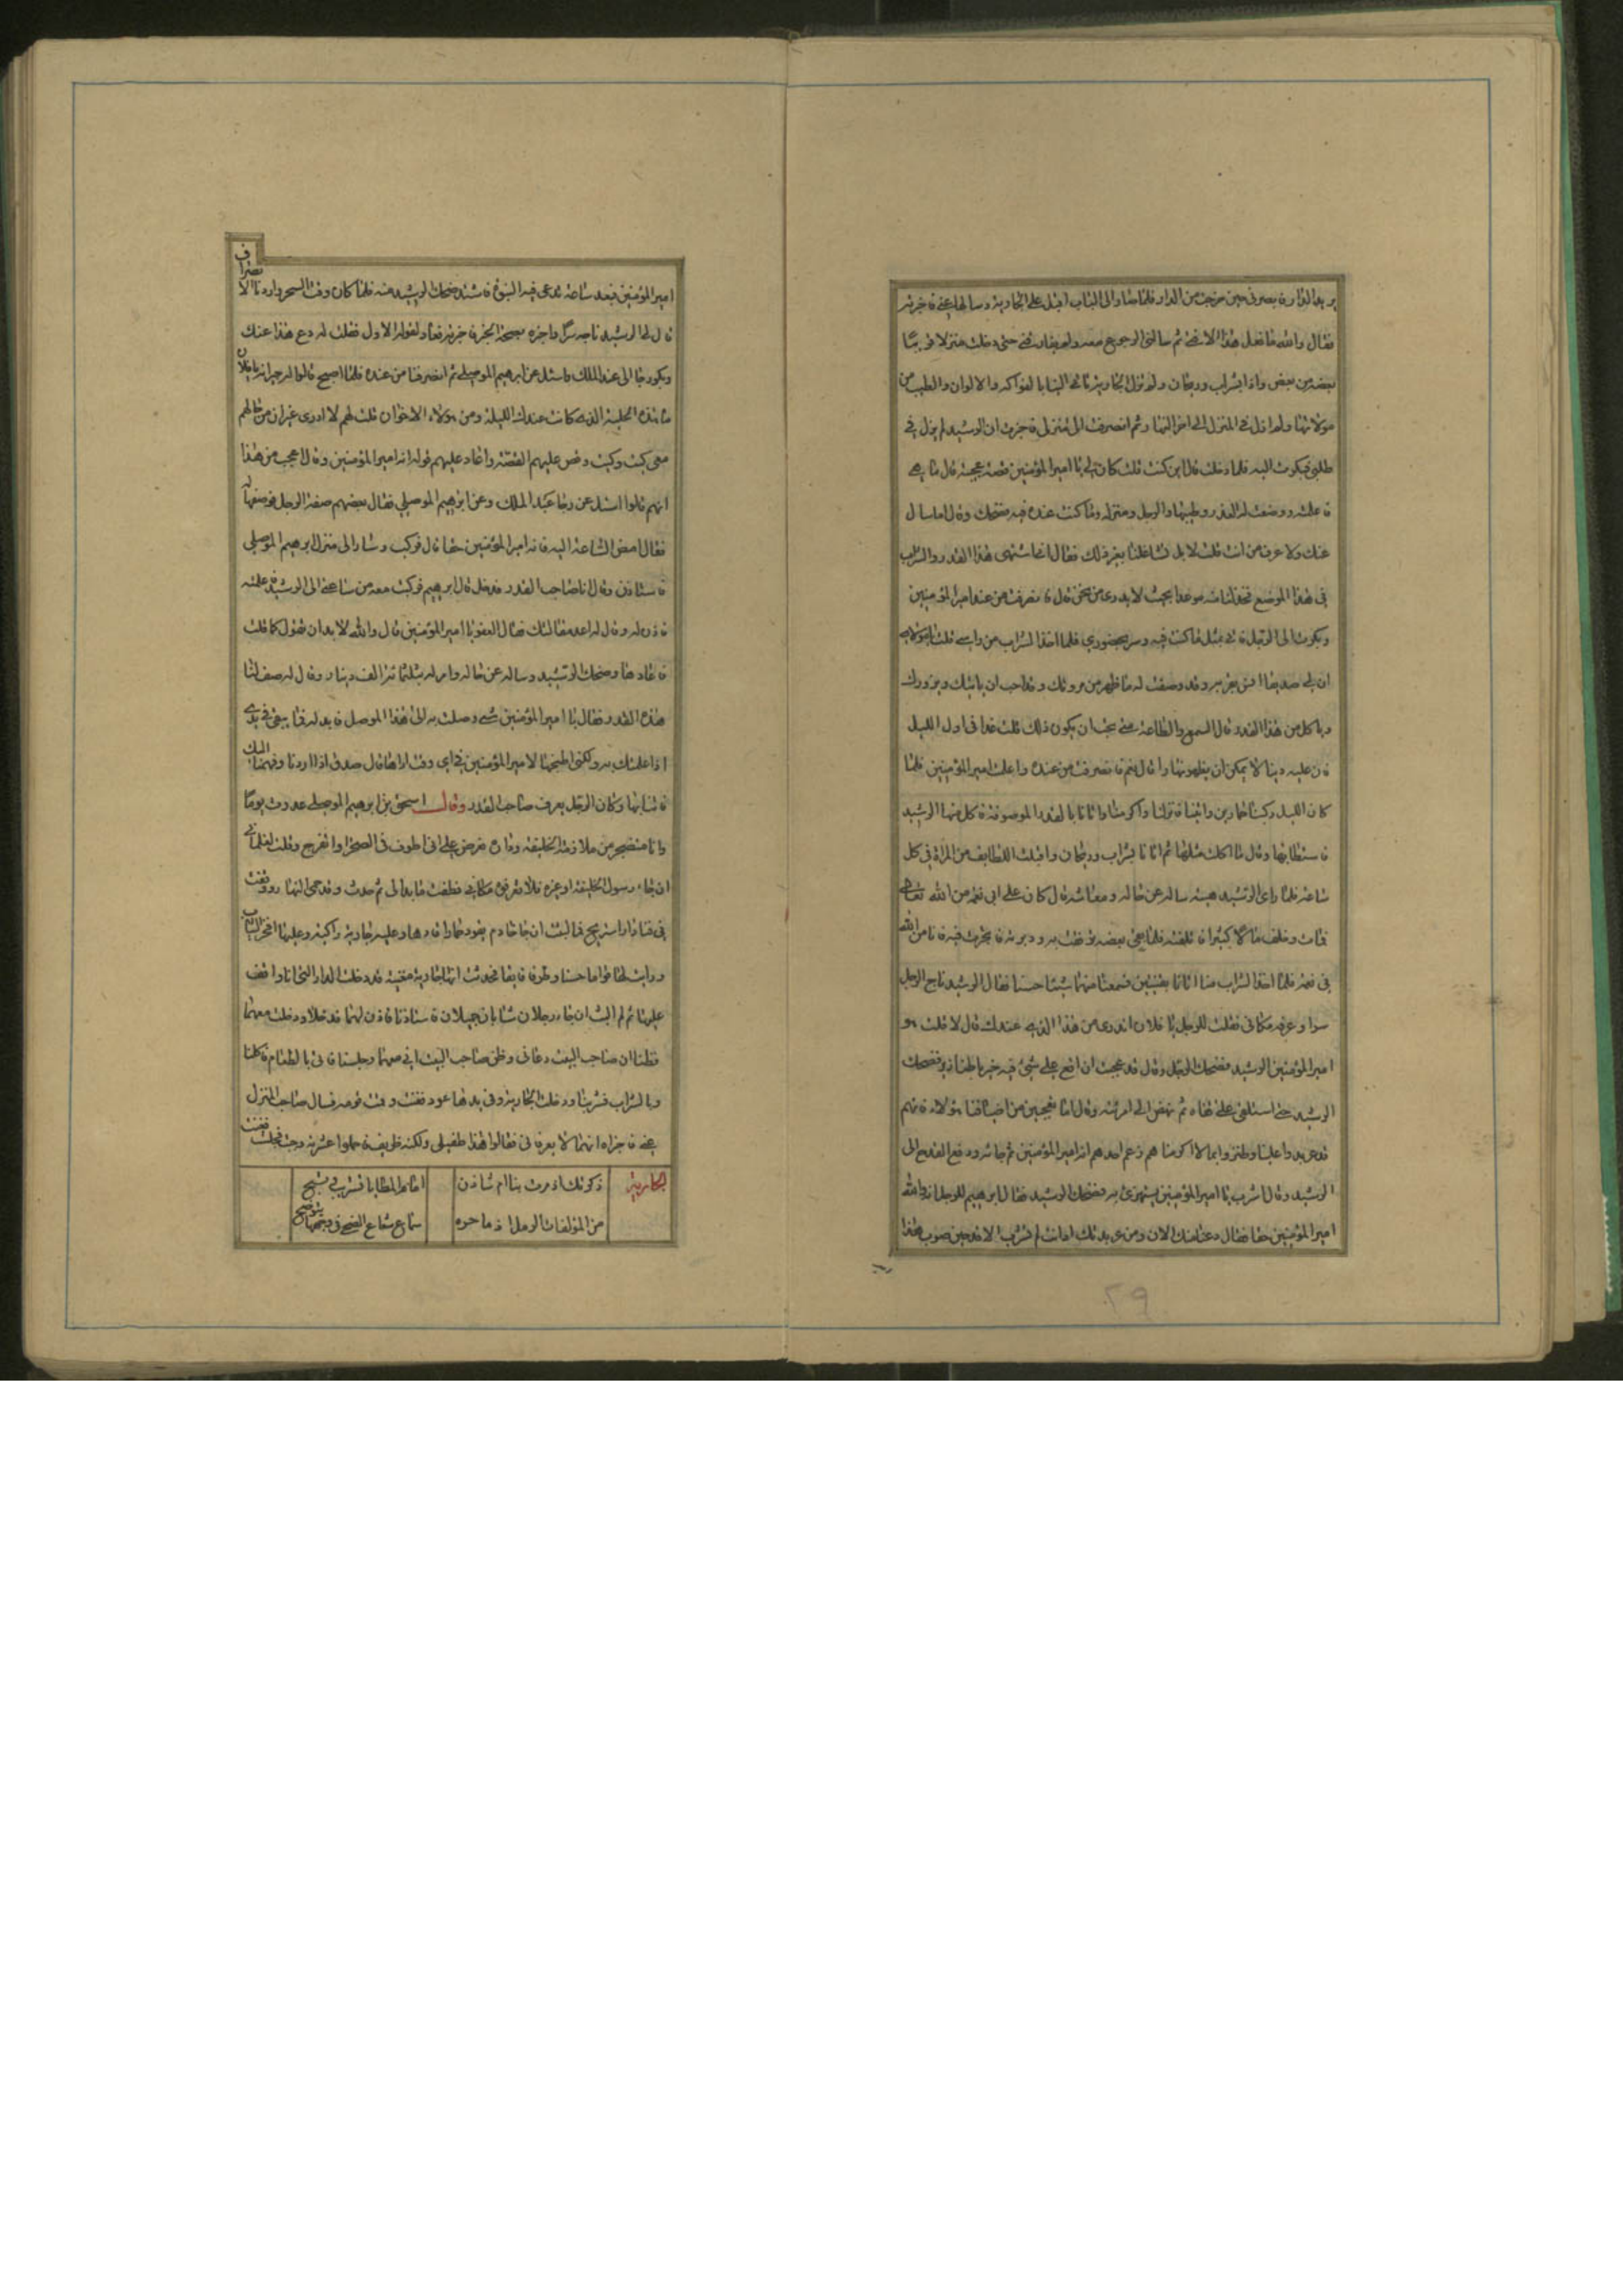 يريد الدار فابصرني حين خرجت من الدار فلما صار الى الباب اقبل على الجارية وسالها عني فاخبرته
فقال والله ما فعل هذا الا لانه ثم سالني الرجوع معه ولم يفارقني حتى دخلت منزلا قريبا
بعضه من بعض واذا بشراب وريحان ولم تزل الجارية تاتي الينا بالفواكه والالوان والطيب من
مولاتها ولم ازل في المنزل الى اخر النهار ثم انصرفت الى منزلي فاخبرت ان الرشيد لم يزل في
طلبي فبكرت اليه فلما دخلت قال اين كنت قلت كان لي يا امير المؤمنين قصة عجيبة قال ما هي
فاعلمته ووصفت له القدر وطيبها والرجل ومنزله وما كنت عنده فيه فضحك وقال اما سال
عنك ولا عرف من انت قلت لا بل تشاغلنا بغير ذلك فقال انا اشتهي هذا القدر والشراب
في هذا الموضع فخذ لنا منه موعدا بحيث لا يدري من نحن قال فانصرفت من عند امير المؤمنين
وبكرت الى الرجل فاذا في مثل ما كنت فيه وسر بحضوري فلما اخذ الشراب من راسي قلت يا مولاي
ان لي صديقا وقد وصفت له ما ظهر من مروتك وقد احب ان ياتيك ويزورك
وياكل من هذا القدر قال السمع والطاعة متى يجب ان يكون ذلك قلت غدا في اول الليل
فان عليه دينا لا يمكن ان يظهر نهارا قال نعم فانصرفت من عنده واعلمت امير المؤمنين فلما
كان الليل ركبنا حمارين واتينا فنزلنا واكرمنا واتانا بالقدر الموصوفة فاكل منها الرشيد
فاستطابها وقال ما اكلت مثلها ثم اتانا بشراب وريحان واقبلت اللطايف من المراة في كل
ساعة فلما راى الرشيد هيئته ساله عن حاله ومعاشه قال كان على ابي نعمة من الله تعالى
فمات وخلف مالا كثيرا فاتلفته فلما بقي بعضه رفقت به ودبرته فانا من الله
في نعمة فلما اخذ الشراب منا اتانا بقينتين فسمعنا منهما شيئا حسنا فقال الرشيد ناج الرجل
سرا وعرفه مكاني فقلت للرجل يا فلان اتدري من هذا الذي عندك قال لا قلت هو
امير المؤمنين الرشيد فضحك الرجل وقال قد عجبت ان اقع على شيء فيه خير فضحك
الرشيد حتى استلقى على قفاه ثم نهض الى امراته وقال اما تعجبين من اضيافنا هؤلاء فانهم
قد عربدوا علينا وانما اكرمناهم زعم احدهم انه امير المؤمنين ثم جاء ودفع القدح الى
الرشيد وقال اشرب يا امير المؤمنين يستهزئ به فضحك الرشيد فقال ابرهيم للرجل انه والله
امير المؤمنين حقا فقال دعنا منك الان ومن عربدتك فانت لم تشرب الا قدحين صوب هذا
٢٩
امير المؤمنين فبعد ساعة تدعي فيه النبوة فاشتد ضحك الرشيد منه فلما كان وقت السحر واردنا الانصراف
قال لي الرشيد ناجه سرا واخبره بصحة الخبر فاخبرته فعاد لقوله الاول فقلت له دع هذا عنك
وبكر غدا الى عند الملك واسئل عن ابرهيم الموصلي ثم انصرفنا من عنده فلما اصبح قالوا له جيرانه يا فلان
ما هذه الجلبة الذي كانت عندك الليلة ومن هؤلاء الاخوان قلت لهم لا ادري غير ان من حالهم
معي كيت وكيت وقص عليهم القصة واعاد عليهم قوله انه امير المؤمنين وقال اعجب من هذا
انهم قالوا اسئل غدا عن دار عبد الملك وعن ابرهيم الموصلي فقال بعضهم صفة الرجل فوصفها له
فقال امض الساعة اليه فانه امير المؤمنين حقا قال فركب وسار الى منزل ابرهيم الموصلي
فاستاذن وقال انا صاحب القدر فدخل قال ابرهيم فركبت معه من ساعتي الى الرشيد فاعلمته
فاذن له وقال له اعد مقالتك فقال العفو يا امير المؤمنين قال والله لا بد ان تقول كما قلت
فاعادها وضحك الرشيد وساله عن حاله وامر له بثلثمائة الف دينار وقال له صف لنا
هذه القدر فقال يا امير المؤمنين شيء وصلت به الى هذا الموصل فايد له فما يبقى في يدي
اذا علمتك به ولكني اطبخها لامير المؤمنين في اي وقت ارادها قال صدق اذا اردنا وجهنا اليك
فاتنا بها وكان الرجل يعرف صاحب القدر وقال اسحق بن ابرهيم الموصلي غدوت يوما
وانا متضجر من ملازمة الخليفة وداره فعرض على ان اطوف في الصحرا واتفرج وقلت لغلماني
ان جاء رسول الخليفة او غيره فلا تعرفون مكاني فطفت ما بدا لي ثم عدت وقد حمى النهار ووقفت
في فناء دار استريح فما لبثت ان جا خادم يقود حمارا فارها وعليه جارية راكبة وعليها افخر الثياب
ورايت لها قواما حسنا وطرفا فايقا فحدثت انها جارية مغنية قد دخلت الدار التي انا واقف
عليها ثم لم البث ان جاء رجلان شابان جميلان فاستاذنا فاذن لهما قد خلا ودخلت معهما
فظنا ان صاحب البيت دعاني وظن صاحب البيت اني معهما وجلسنا فاتي بالطعام فاكلنا
وبالشراب فشربنا ودخلت الجارية وفي يدها عود فغنت وقمت قومة فسال صاحب المنزل
عني فاخبراه انهما لا يعرفاني فقالوا هذا طفيلي ولكنه ظريف فاجملوا عشرته وجئت فجلست فغنت
الجارية ذكرتك اذ مرت بنا ام شادن امام المطايا تشرئب وتسنح
من المؤلفات الرمل ادماء حرة شعاع الضحى في متنها يتوضح